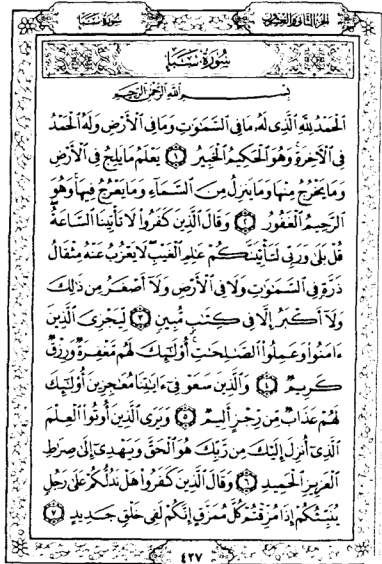 الجزء الثاني والعشرون
سورة سبأ
سورة سبأ
بسم الله الرحمن الرحيم
الْحَمْدُ لِلَّهِ الَّذِى لَهُ مَا فِى السَّمَٰوَٰتِ وَمَا فِى الْأَرْضِ وَلَهُ الْحَمْدُ
فِى الْآخِرَةِ وَهُوَ الْحَكِيمُ الْخَبِيرُ ١ يَعْلَمُ مَا يَلِجُ فِى الْأَرْضِ
وَمَا يَخْرُجُ مِنْهَا وَمَا يَنزِلُ مِنَ السَّمَآءِ وَمَا يَعْرُجُ فِيهَا وَهُوَ
الرَّحِيمُ الْغَفُورُ ٢ وَقَالَ الَّذِينَ كَفَرُوا۟ لَا تَأْتِينَا السَّاعَةُ
قُلْ بَلَىٰ وَرَبِّى لَتَأْتِيَنَّكُمْ عَٰلِمِ الْغَيْبِ لَا يَعْزُبُ عَنْهُ مِثْقَالُ
ذَرَّةٍ فِى السَّمَٰوَٰتِ وَلَا فِى الْأَرْضِ وَلَآ أَصْغَرُ مِن ذَٰلِكَ
وَلَآ أَكْبَرُ إِلَّا فِى كِتَٰبٍ مُّبِينٍ ٣ لِّيَجْزِىَ الَّذِينَ
ءَامَنُوا۟ وَعَمِلُوا۟ الصَّٰلِحَٰتِ أُو۟لَٰٓئِكَ لَهُم مَّغْفِرَةٌ وَرِزْقٌ
كَرِيمٌ ٤ وَالَّذِينَ سَعَوْ فِىٓ ءَايَٰتِنَا مُعَٰجِزِينَ أُو۟لَٰٓئِكَ
لَهُمْ عَذَابٌ مِّن رِّجْزٍ أَلِيمٌ ٥ وَيَرَى الَّذِينَ أُوتُوا۟ الْعِلْمَ
الَّذِىٓ أُنزِلَ إِلَيْكَ مِن رَّبِّكَ هُوَ الْحَقَّ وَيَهْدِىٓ إِلَىٰ صِرَٰطِ
الْعَزِيزِ الْحَمِيدِ ٦ وَقَالَ الَّذِينَ كَفَرُوا۟ هَلْ نَدُلُّكُمْ عَلَىٰ رَجُلٍ
يُنَبِّئُكُمْ إِذَا مُزِّقْتُمْ كُلَّ مُمَزَّقٍ إِنَّكُمْ لَفِى خَلْقٍ جَدِيدٍ ٧
٤٢٧